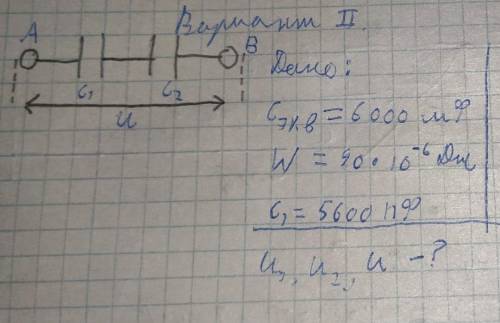 Вариант II.
A
B
Дано:
C₁
C₂
U
Cэкв = 6000 мф
W = 90 · 10⁻⁶ Дж
C₁ = 5600 пф
U₁, U₂, U - ?